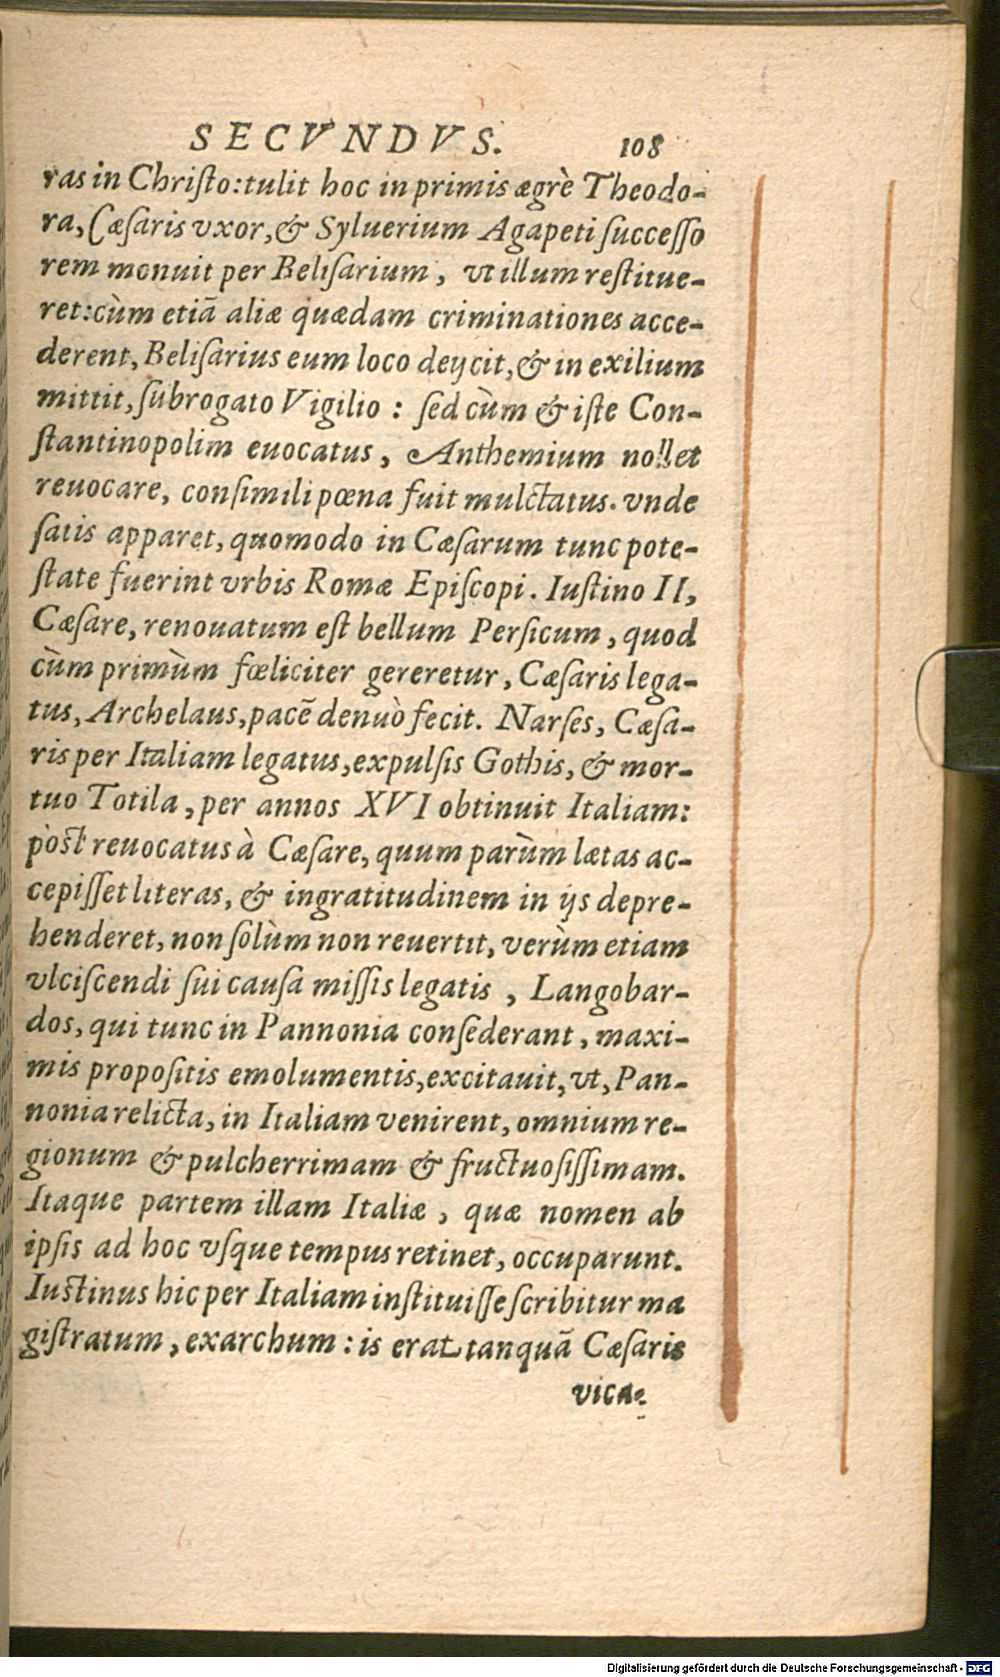 SECVNDVS. 108
ras in Chriſto: tulit hoc in primis ægrè Theodo-
ra, Cæſaris vxor, & Syluerium Agapeti ſucceſſo
rem monuit per Beliſarium, vt illum reſtitue-
ret: cùm etiã aliæ quædam criminationes acce-
derent, Beliſarius eum loco deijcit, & in exilium
mittit, ſubrogato Vigilio: ſed cùm & iſte Con-
ſtantinopolim euocatus, Anthemium nollet
reuocare, conſimili pœna fuit mulctatus. vnde
ſatis apparet, quomodo in Cæſarum tunc pote-
ſtate fuerint vrbis Romæ Epiſcopi. Iuſtino II,
Cæſare, renouatum eſt bellum Perſicum, quod
cùm primùm fœliciter gereretur, Cæſaris lega-
tus, Archelaus, pacẽ denuò fecit. Narſes, Cæſa-
ris per Italiam legatus, expulſis Gothis, & mor-
tuo Totila, per annos XVI obtinuit Italiam:
pòſt reuocatus à Cæſare, quum parùm lætas ac-
cepiſſet literas, & ingratitudinem in ijs depre-
henderet, non ſolùm non reuertit, verùm etiam
vlciſcendi ſui cauſa miſſis legatis, Langobar-
dos, qui tunc in Pannonia conſederant, maxi-
mis propoſitis emolumentis, excitauit, vt, Pan-
nonia relicta, in Italiam venirent, omnium re-
gionum & pulcherrimam & fructuoſiſſimam.
Itaque partem illam Italiæ, quæ nomen ab
ipſis ad hoc vſque tempus retinet, occuparunt.
Iuſtinus hic per Italiam inſtituiſſe ſcribitur ma
giſtratum, exarchum: is erat tanquã Cæſaris
vica-
Digitalisierung gefördert durch die Deutsche Forschungsgemeinschaft - DFG